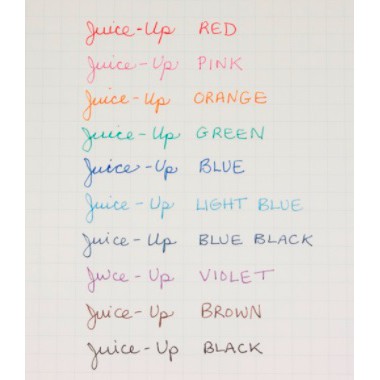 Juice-Up RED
Juice-Up PINK
Juice-Up ORANGE
Juice-Up GREEN
Juice-Up BLUE
Juice-Up LIGHT BLUE
Juice-Up BLUE BLACK
Juice-Up VIOLET
Juice-Up BROWN
Juice-Up BLACK